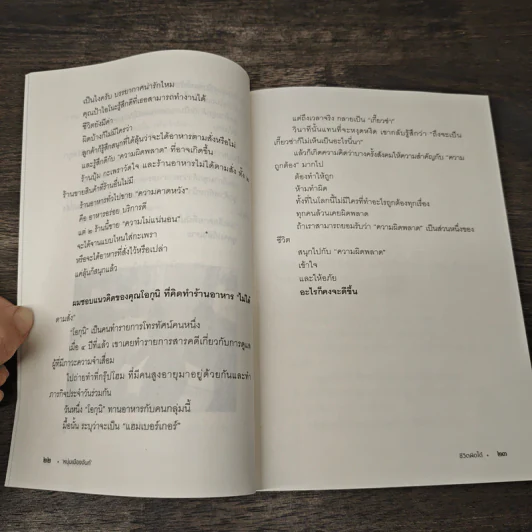 เป็นไงครับ บรรยากาศน่ารักไหม
คุณป้าโอในะรู้สึกดีที่เธอสามารถทำงานได้
ชีวิตยังมีค่า
ผิดบ้างก็ไม่มีใครว่า
ลูกค้าก็รู้สึกสนุกที่ได้ลุ้นว่าจะได้อาหารตามสั่งหรือไม่
และรู้สึกดีกับ "ความผิดพลาด" ที่อาจเกิดขึ้น
ร้านปุ้ม กะเพราวัดใจ และร้านอาหารไม่ได้ตามสั่ง ทั้ง ๒
ร้านขายสินค้าที่ร้านอื่นไม่มี
ร้านอาหารทั่วไปขาย "ความคาดหวัง"
คือ อาหารอร่อย บริการดี
แต่ ๒ ร้านนี้ขาย "ความไม่แน่นอน"
จะได้จานแบบไหนใส่กะเพรา
หรือจะได้อาหารที่สั่งไว้หรือเปล่า
แค่ลุ้นก็สนุกแล้ว
ผมชอบแนวคิดของคุณโอกุนิ ที่คิดทำร้านอาหาร "ไม่ได้
ตามสั่ง"
"โอกุนิ" เป็นคนทำรายการโทรทัศน์คนหนึ่ง
เมื่อ ๕ ปีที่แล้ว เขาเคยทำรายการสารคดีเกี่ยวกับการดูแล
ผู้ที่มีภาวะความจำเสื่อม
ไปถ่ายทำที่กรุ๊ปโฮม ที่มีคนสูงอายุมาอยู่ด้วยกันและทำ
ภารกิจประจำวันร่วมกัน
วันหนึ่ง "โอกุนิ" ทานอาหารกับคนกลุ่มนี้
มื้อนั้น ระบุว่าจะเป็น "แฮมเบอร์เกอร์"
๒๒ • หนุ่มเมืองจันท์
แต่ถึงเวลาจริง กลายเป็น "เกี๊ยวซ่า"
วินาทีนั้นแทนที่จะหงุดหงิด เขากลับรู้สึกว่า "ถึงจะเป็น
เกี๊ยวซ่าก็ไม่เห็นเป็นอะไรนี่นา"
แล้วก็เกิดความคิดว่าบางครั้งสังคมให้ความสำคัญกับ "ความ
ถูกต้อง" มากไป
ต้องทำให้ถูก
ห้ามทำผิด
ทั้งที่ในโลกนี้ไม่มีใครที่ทำอะไรถูกต้องทุกเรื่อง
ทุกคนล้วนเคยผิดพลาด
ถ้าเราสามารถยอมรับว่า "ความผิดพลาด" เป็นส่วนหนึ่งของ
ชีวิต
สนุกไปกับ "ความผิดพลาด"
เข้าใจ
และให้อภัย
อะไรก็คงจะดีขึ้น
ชีวิตผิดได้ • ๒๓